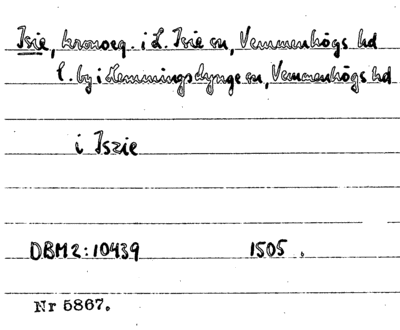 Isie, kronoeg. i L. Isie sn, Vemmenhögs hd
l. by i Lemmingstynge sn, Vemmenhögs hd
i Iszie
DBM 2:10439 1505.
Nr 5867.